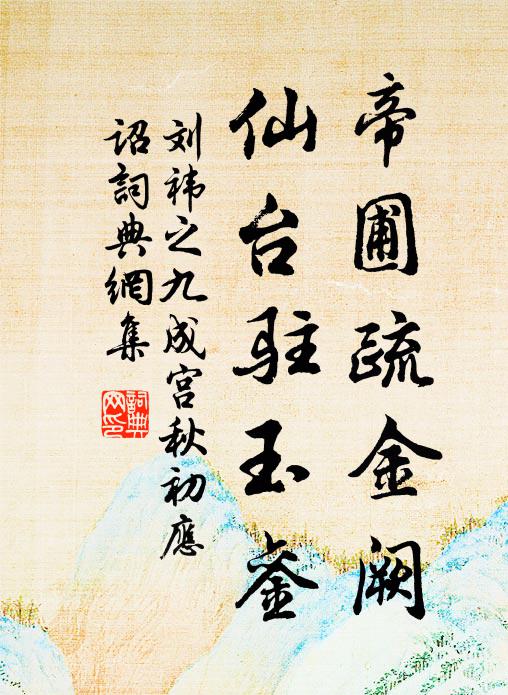 帝圃疏金阙
仙台驻玉銮
刘祎之九成宫秋初應
诏詞典網集
詞典网印